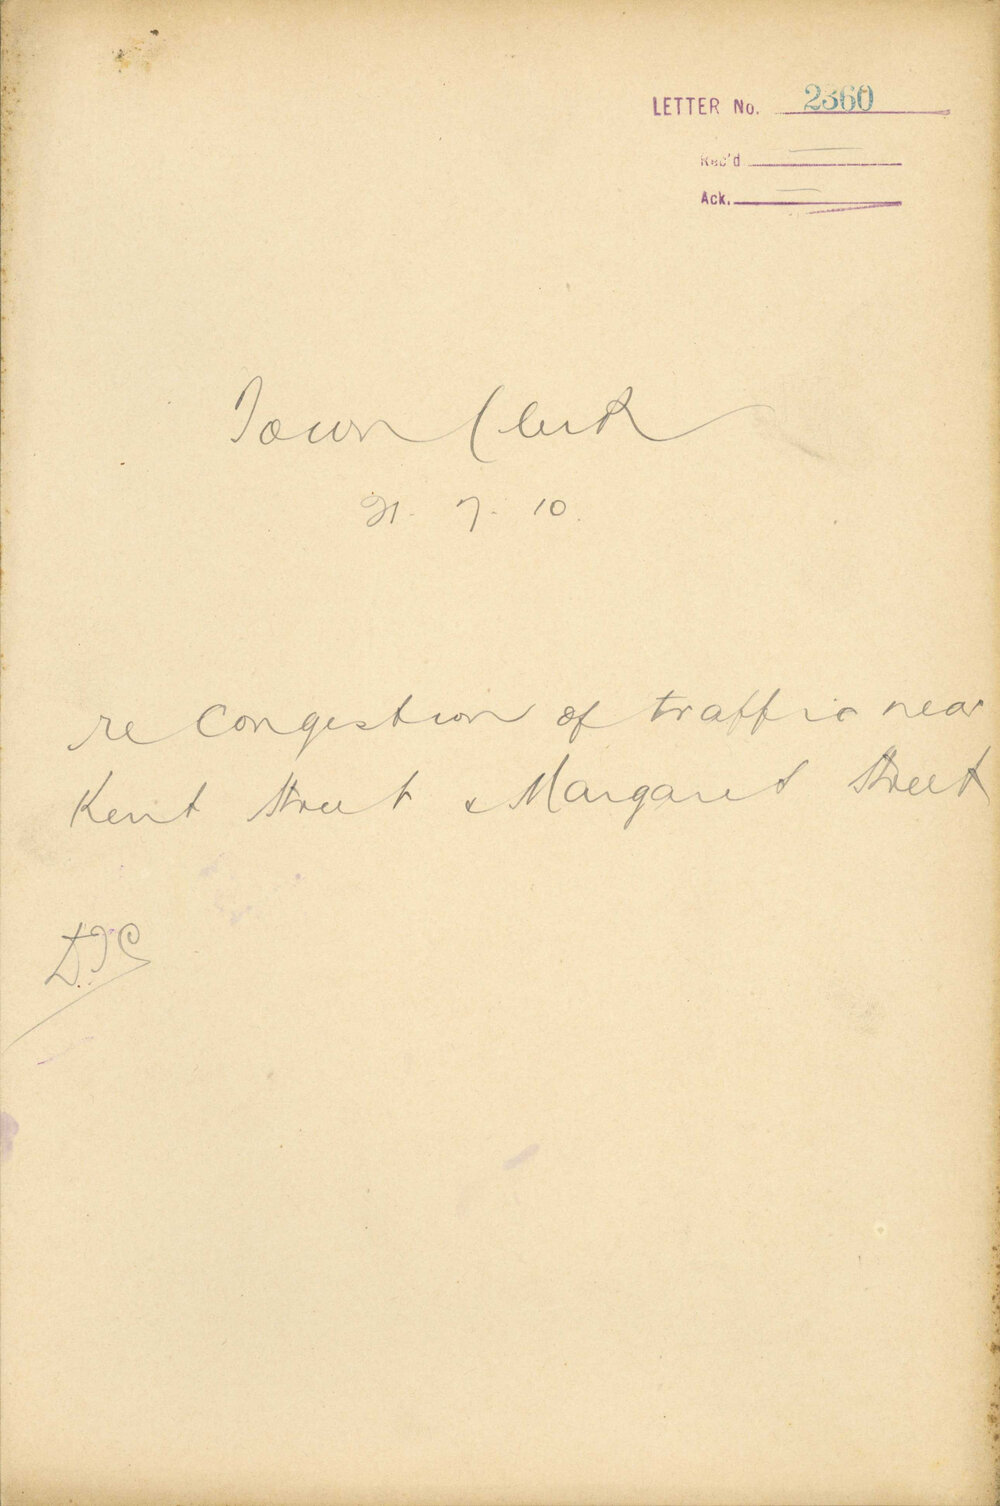 LETTER No. 2360
Rec'd
Ack.
Town Clerk
21. 7. 10.
re Congestion of traffic near
Kent Street & Margaret Street